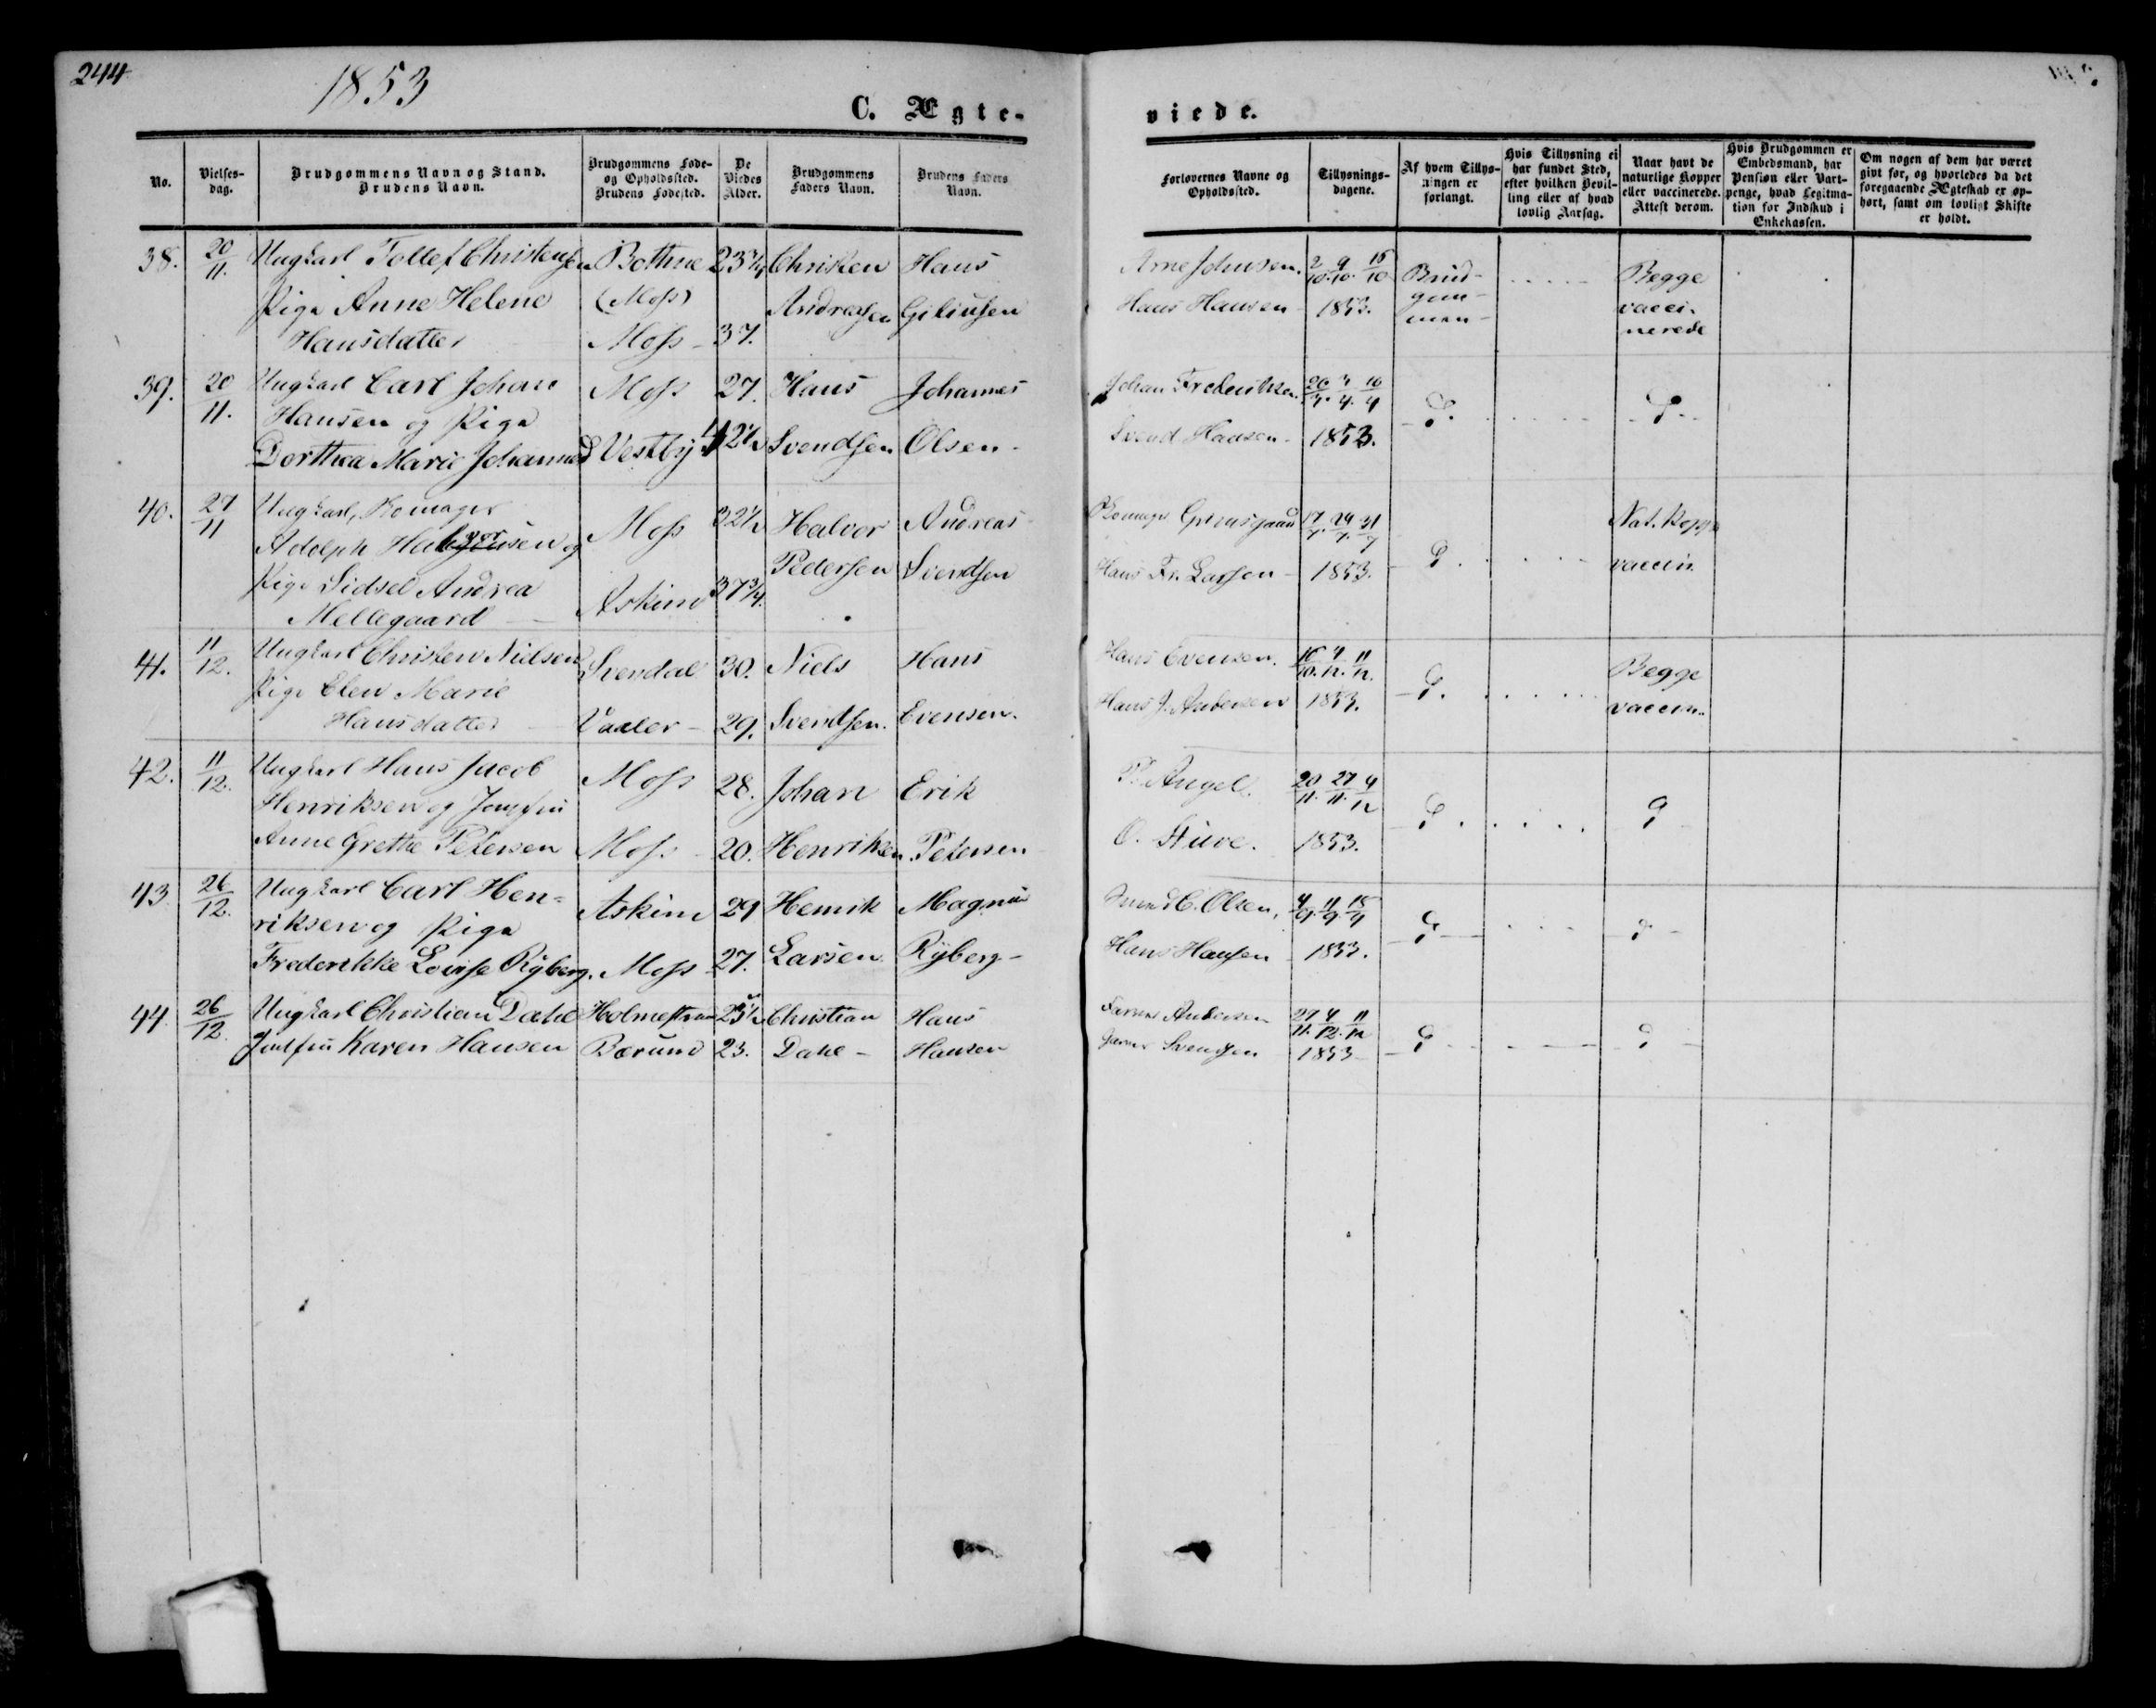 244
1853
C. Ægte-
viede.
No.
Vielses-
dag.
Brudgommens Navn og Stand.
Brudens Navn.
Brudgommens Føde-
og Opholdssted.
Brudens Fødested.
De
Viedes
Alder.
Brudgommens
Faders Navn.
Brudens Faders
Navn.
Forlovernes Navne og
Opholdssted.
Tillysnings-
dagene.
Af hvem Tillys-
ningen er
forlangt.
Hvis Tillysning ei
har fundet Sted,
efter hvilken Bevil-
ling eller af hvad
lovlig Aarsag.
Naar havt de
naturlige Kopper
eller vaccinerede.
Attest derom.
Hvis Brudgommen er
Embedsmand, har
Pension eller Vart-
penge, hvad Legitma-
tion for Indskud i
Enkekassen.
Om nogen af dem har været
givt før, og hvorledes da det
foregaaende Ægteskab er op-
hørt, samt om lovligt Skifte
er holdt.
38. 20/11. Ungkarl Tollef Christensen Bothne 23 3/4 Christen Hans
Pige Anne Helene (Moss) Andreasen
Hansdatter Moss 37.
Arne Johnsen. 2/10. 9/10. 16/10 Brud-
Hans Hansen 1853. gom-
men
Begge
vacci-
nerede
39. 20/11. Ungkarl Carl Johan Moss 27. Hans Johannes
Hansen og Pige
Dorthea Marie Johannesd Vestby Svendsen Olsen
Johan Frederiksen
Svend Hansen 1853.
40. 27/11 Ungkarl,
Adolph Halvorsen og Moss 32 1/2 Halvor Andreas
Pige Sidsel Andrea Pedersen Svendsen
Mellegaard Askim 37 3/4.
17/7. 24/7. 31/7
Hans Fr. Larsen 1853.
Nat. Kopp
vaccin.
41. 11/12. Ungkarl Christen Nielsen 30. Niels Hans
Pige Elen Marie
Hansdatter Vaaler 29. Svendsen. Evensen.
Hans Evensen.
Hans J. Andersen 1853.
Begge
vaccin.
42. 11/12. Ungkarl Hans Jacob Moss 28. Johan Erik
Henriksen og Jomfru
Anne Grethe Petersen Moss 20. Henriksen Petersen
P. Angel. 20/11. 27/11. 4/12
O. Stuve. 1853.
43. 26/12. Ungkarl Carl Hen- Askim 29 Henrik Magnus
riksen og Pige
Frederikke Lovise Ryberg. Moss 27. Larsen Ryberg
Olsen, 4/9. 11/9. 18/9
Hans Hansen 1853.
44. 26/12. Ungkarl Christian Dahl Holmestrand Christian Hans
Jomfru Karen Hansen Bærum 23. Dahl Hansen
Andersen 27/11. 4/12. 11/12
Svendsen 1853